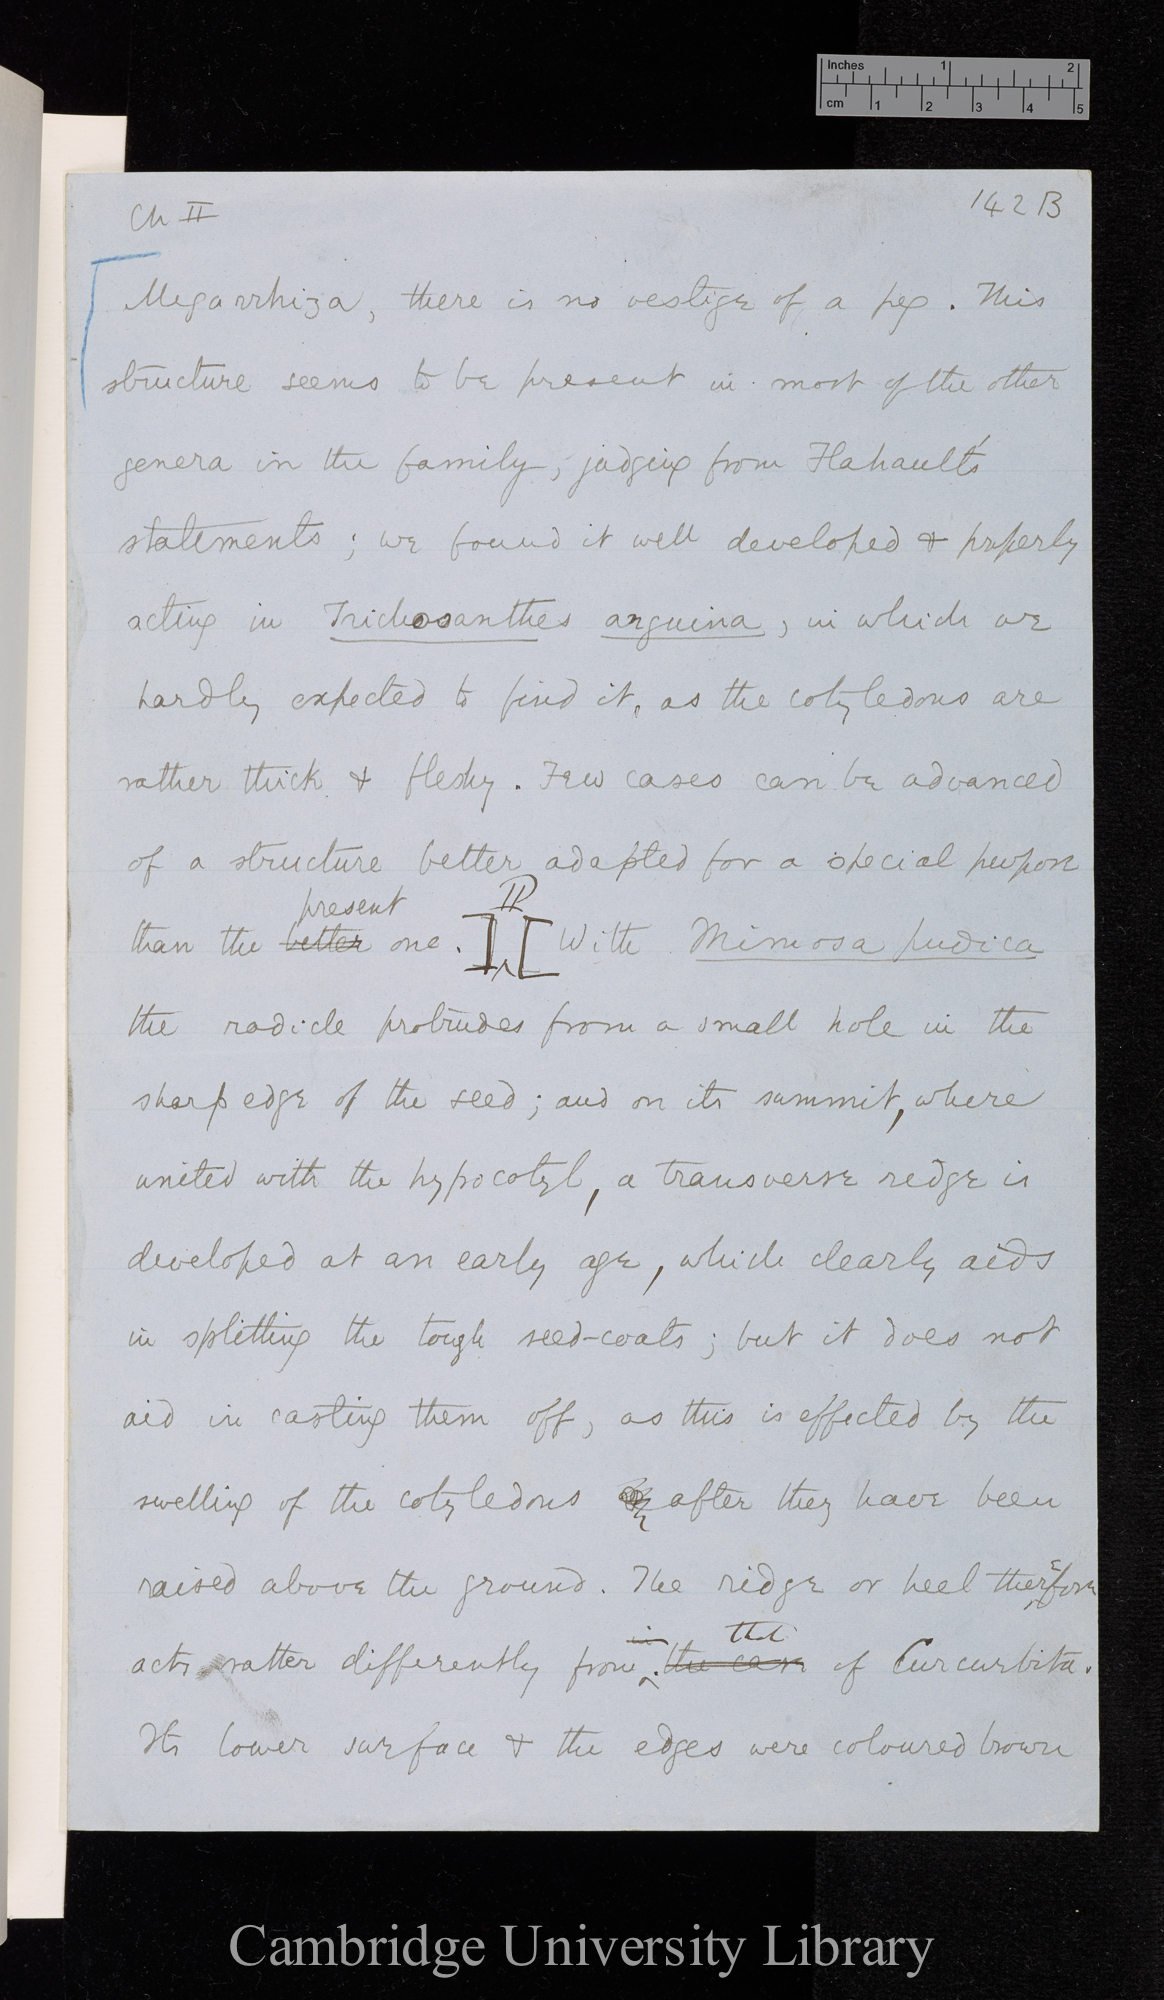 Inches 1 2
cm 1 2 3 4 5
Ch II 142 B
Megarrhiza, there is no vestige of a peg. This
structure seems to be present in most of the other
genera in the family, judging from Flahault's
statements; we found it well developed & properly
acting in Trichosanthes anguina, in which we
hardly expected to find it, as the cotyledons are
rather thick & fleshy. Few cases can be advanced
of a structure better adapted for a special purpose
present
than the better one. ] [ With Mimosa pudica
the radicle protrudes from a small hole in the
sharp edge of the seed; and on its summit, where
united with the hypocotyl, a transverse ridge is
developed at an early age, which clearly aids
in splitting the tough seed-coats; but it does not
aid in casting them off, as this is effected by the
swelling of the cotyledons after they have been
raised above the ground. The ridge or heel therefore
in that
acts rather differently from the case of Curcurbita.
Its lower surface & the edges were coloured brown
Cambridge University Library